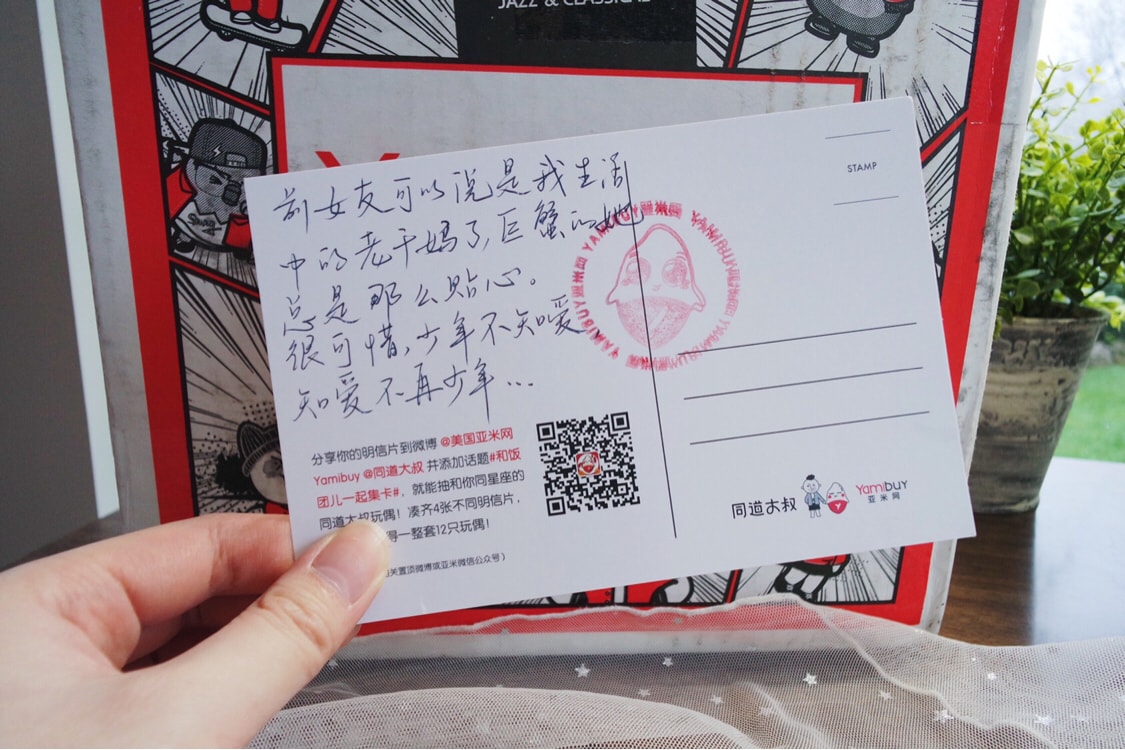 JAZZ & CLASSICAL
前女友可以说是我生活
中的老干妈了,巨蟹的她
总是那么贴心。
很可惜,少年不知爱
知爱不再少年...
STAMP
YAMIBUY亚米网 YAMIBUY亚米网 YAMIBUY亚米网 YAMIBUY亚米网
分享你的明信片到微博 @美国亚米网
Yamibuy @同道大叔 并添加话题#和饭
团儿一起集卡#,就能抽和你同星座的
同道大叔玩偶!凑齐4张不同明信片,
得一整套12只玩偶!
关置顶微博或亚米微信公众号)
同道大叔
Yamibuy
亚米网